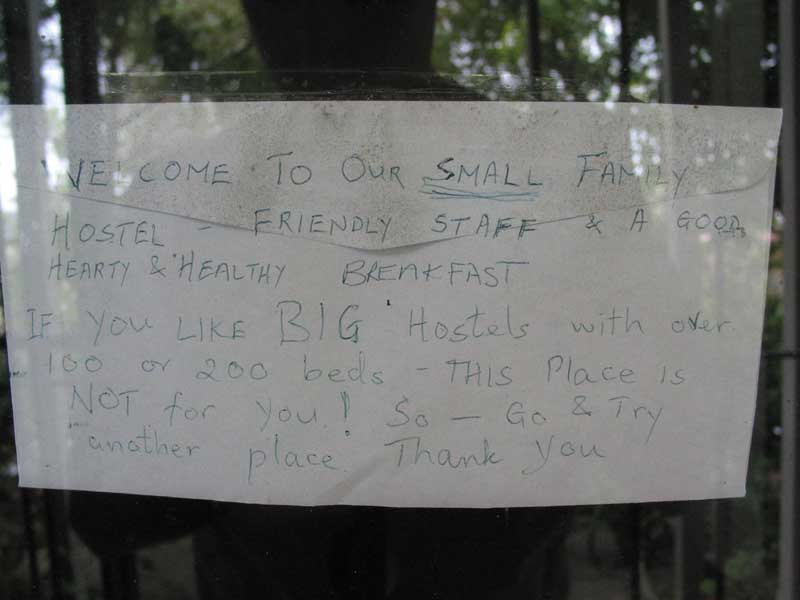 WELCOME TO OUR SMALL FAMILY
HOSTEL - FRIENDLY STAFF & A GOOD
HEARTY & HEALTHY BREAKFAST
IF YOU LIKE BIG Hostels with over
100 or 200 beds - THIS Place is
NOT for you! So - Go & Try
another place. Thank you